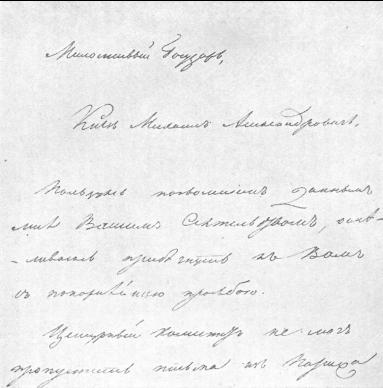 Милостивый Государь,
Князь Михаилъ Александровичъ,
Пользуясь позволеніемъ даннымъ
мнѣ Вашимъ Сіятельствомъ, осмѣ-
-ливаюсь прибѣгнуть къ Вамъ
съ покорнѣйшею просьбою.
Цензурный Комитетъ не могъ
пропустить письма изъ Парижа